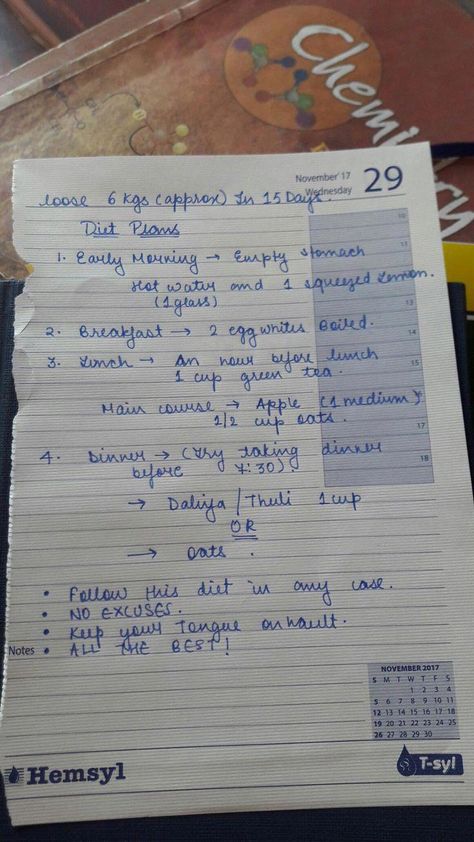 Chemistry
November'17
Wednesday 29
loose 6 Kgs (approx) In 15 Days.
Diet Plans
10
1. Early Morning → Empty stomach
11
Hot water and 1 squeezed Lemon.
(1 glass)
13
2. Breakfast → 2 egg whites Boiled.
14
3. Lunch → An hour before lunch
15
1 cup green tea.
Main course → Apple (1 medium)
1/2 cup oats.
17
4. Dinner → (Try taking dinner
18
before 7:30)
→ Daliya / Thuli 1 cup
OR
→ oats.
• Follow this diet in any case.
• NO EXCUSES.
• Keep your Tongue on hault.
Notes • ALL THE BEST!
NOVEMBER 2017
S M T W T F S
1 2 3 4
5 6 7 8 9 10 11
12 13 14 15 16 17 18
19 20 21 22 23 24 25
26 27 28 29 30
Hemsyl
T-syl